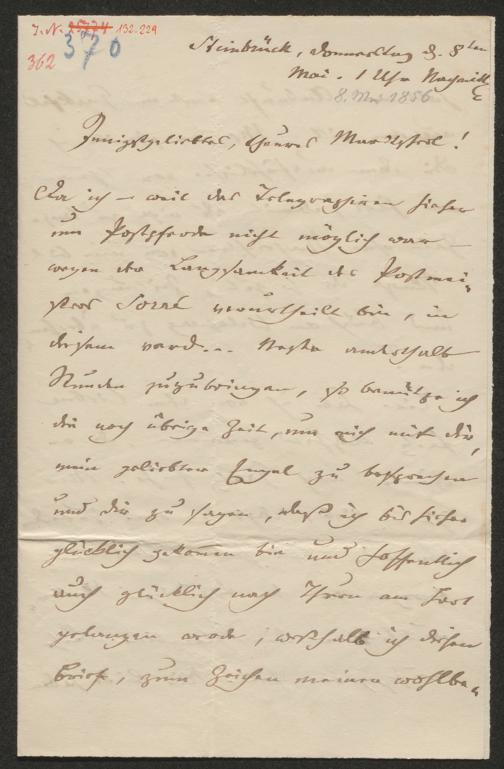 J. N. 25774 132.229
370
362
Steinbrück, Donnerstag d. 8ten
Mai. 1 Uhr Nachmitt
8. Mai 1856
Innigstgeliebtes, theures Mariecherl!
Da ich – weil das Telegraphiren hieher
um Postpferde nicht möglich war –
wegen der Langsamkeit des Postmei-
sters verurtheilt bin, in
diesem verd... Neste anderthalb
Stunden zuzubringen, so benütze ich
die noch übrige Zeit, um mich mit dir,
mein geliebter Engel zu besprechen
und dir zu sagen, daß ich bis hieher
glücklich gekommen bin und hoffentlich
auch glücklich nach Thurn am Hart
gelangen werde, weßhalb ich diesen
Brief, zum Zeichen meines wohlbe-